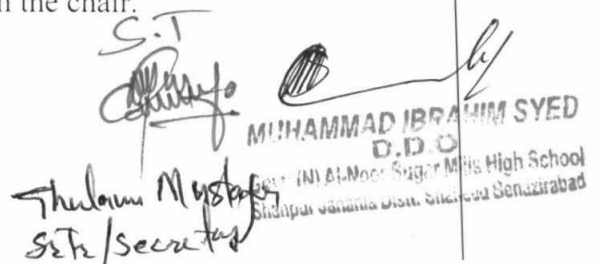 the chair.
S.T
MUHAMMAD IBRAHIM SYED
D.D.O
(N) Al-Noor Sugar Mills High School
Shahpur Jahania Distt. Shaheed Benazirabad
Ghulam Mustafa
/Secretary